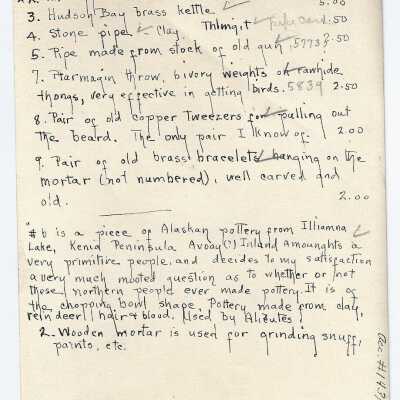 3. Hudson Bay brass kettle 5.00
4. Stone pipe Clay. Thlingit .50
5. Pipe made from stock of old gun, 5773, 2.50
7. Ptarmagin throw, bivory weights on rawhide
thongs, very effective in getting birds. 5839 2.50
8. Pair of old copper tweezers for pulling out
the beard. The only pair I know of. 2.00
9. Pair of old brass bracelets hanging on the
mortar (not numbered), well carved and
old. 2.00
#6 is a piece of Alaskan pottery from Illiamna
Lake, Kenia Peninsula Avooy(?) Island Amounghts a
very primitive people, and decides to my satisfaction
a very much mooted question as to whether or not
these northern people ever made pottery. It is of
the chopping bowl shape. Pottery made from clay,
reindeer hair & blood. Used by Aleutes
2. Wooden mortar is used for grinding snuff,
paints, etc.